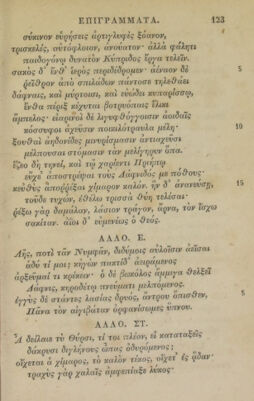 ΕΠΙΓΡΑΜΜΑΤΑ. 123
σύκινον εὑρήσεις ἀρτιγλυφὲς ξόανον,
τρισκελές, αὐτόφλοιον, ἀνούατον· ἀλλὰ φάλητι
παιδογόνῳ δυνατὸν Κύπριδος ἔργα τελεῖν.
σακὸς δ' ἔνθ' ἱερὸς περιδέδρομεν· ἀέναον δὲ 5
ῥεῖθρον ἀπὸ σπιλάδων πάντοσε τηλεθάει
δάφναις, καὶ μύρτοισι, καὶ εὐώδει κυπαρίσσῳ,
ἔνθα πέριξ κέχυται βοτρυόπαις ἕλικι
ἄμπελος· εἰαρινοὶ δὲ λιγυφθόγγοισιν ἀοιδαῖς
κόσσυφοι ἀχεῦσιν ποικιλότραυλα μέλη· 10
ξουθαὶ ἀηδονίδες μινυρίσμασιν ἀνταχεῦσι
μέλπουσαι στόμασιν τὰν μελίγηρυν ὄπα.
ἕζεο δὴ τηνεί, καὶ τῷ χαρίεντι Πριήπῳ
εὔχε' ἀποστρέψαι τοὺς Δάφνιδός με πόθους·
κεὐθὺς ἀποῤῥέξαι χίμαρον καλόν. ἢν δ' ἀνανεύσῃ, 15
τοῦδε τυχών, ἐθέλω τρισσὰ θύη τελέσαι·
ῥέξω γὰρ δαμάλαν, λάσιον τράγον, ἄρνα, τὸν ἴσχω
σακίταν. ἀΐοι δ' εὐμενέως ὁ θεός.
ΑΛΛΟ. Ε.
Λῇς, ποτὶ τᾶν Νυμφᾶν, διδύμοις αὐλοῖσιν ἀεῖσαι
ἁδύ τί μοι; κἠγὼν πακτίδ' ἀειράμενος
ἀρξεῦμαί τι κρέκειν· ὁ δὲ βωκόλος ἄμμιγα θελξεῖ
Δάφνις, κηροδέτῳ πνεύματι μελπόμενος.
ἐγγὺς δὲ στάντες λασίας δρυός, ἄντρου ὄπισθεν, 5
Πᾶνα τὸν αἰγιβάταν ὀρφανίσωμες ὕπνου.
ΑΛΛΟ. ΣΤ.
Ἆ δείλαιε τὺ Θύρσι, τί τοι πλέον, εἰ καταταξεῖς
δάκρυσι διγλήνους ὦπας ὀδυρόμενος;
οἴχεται ἁ χίμαρος, τὸ καλὸν τέκος, οἴχετ' ἐς ᾅδαν·
τραχὺς γὰρ χαλαῖς ἀμφεπίαξε λύκος·